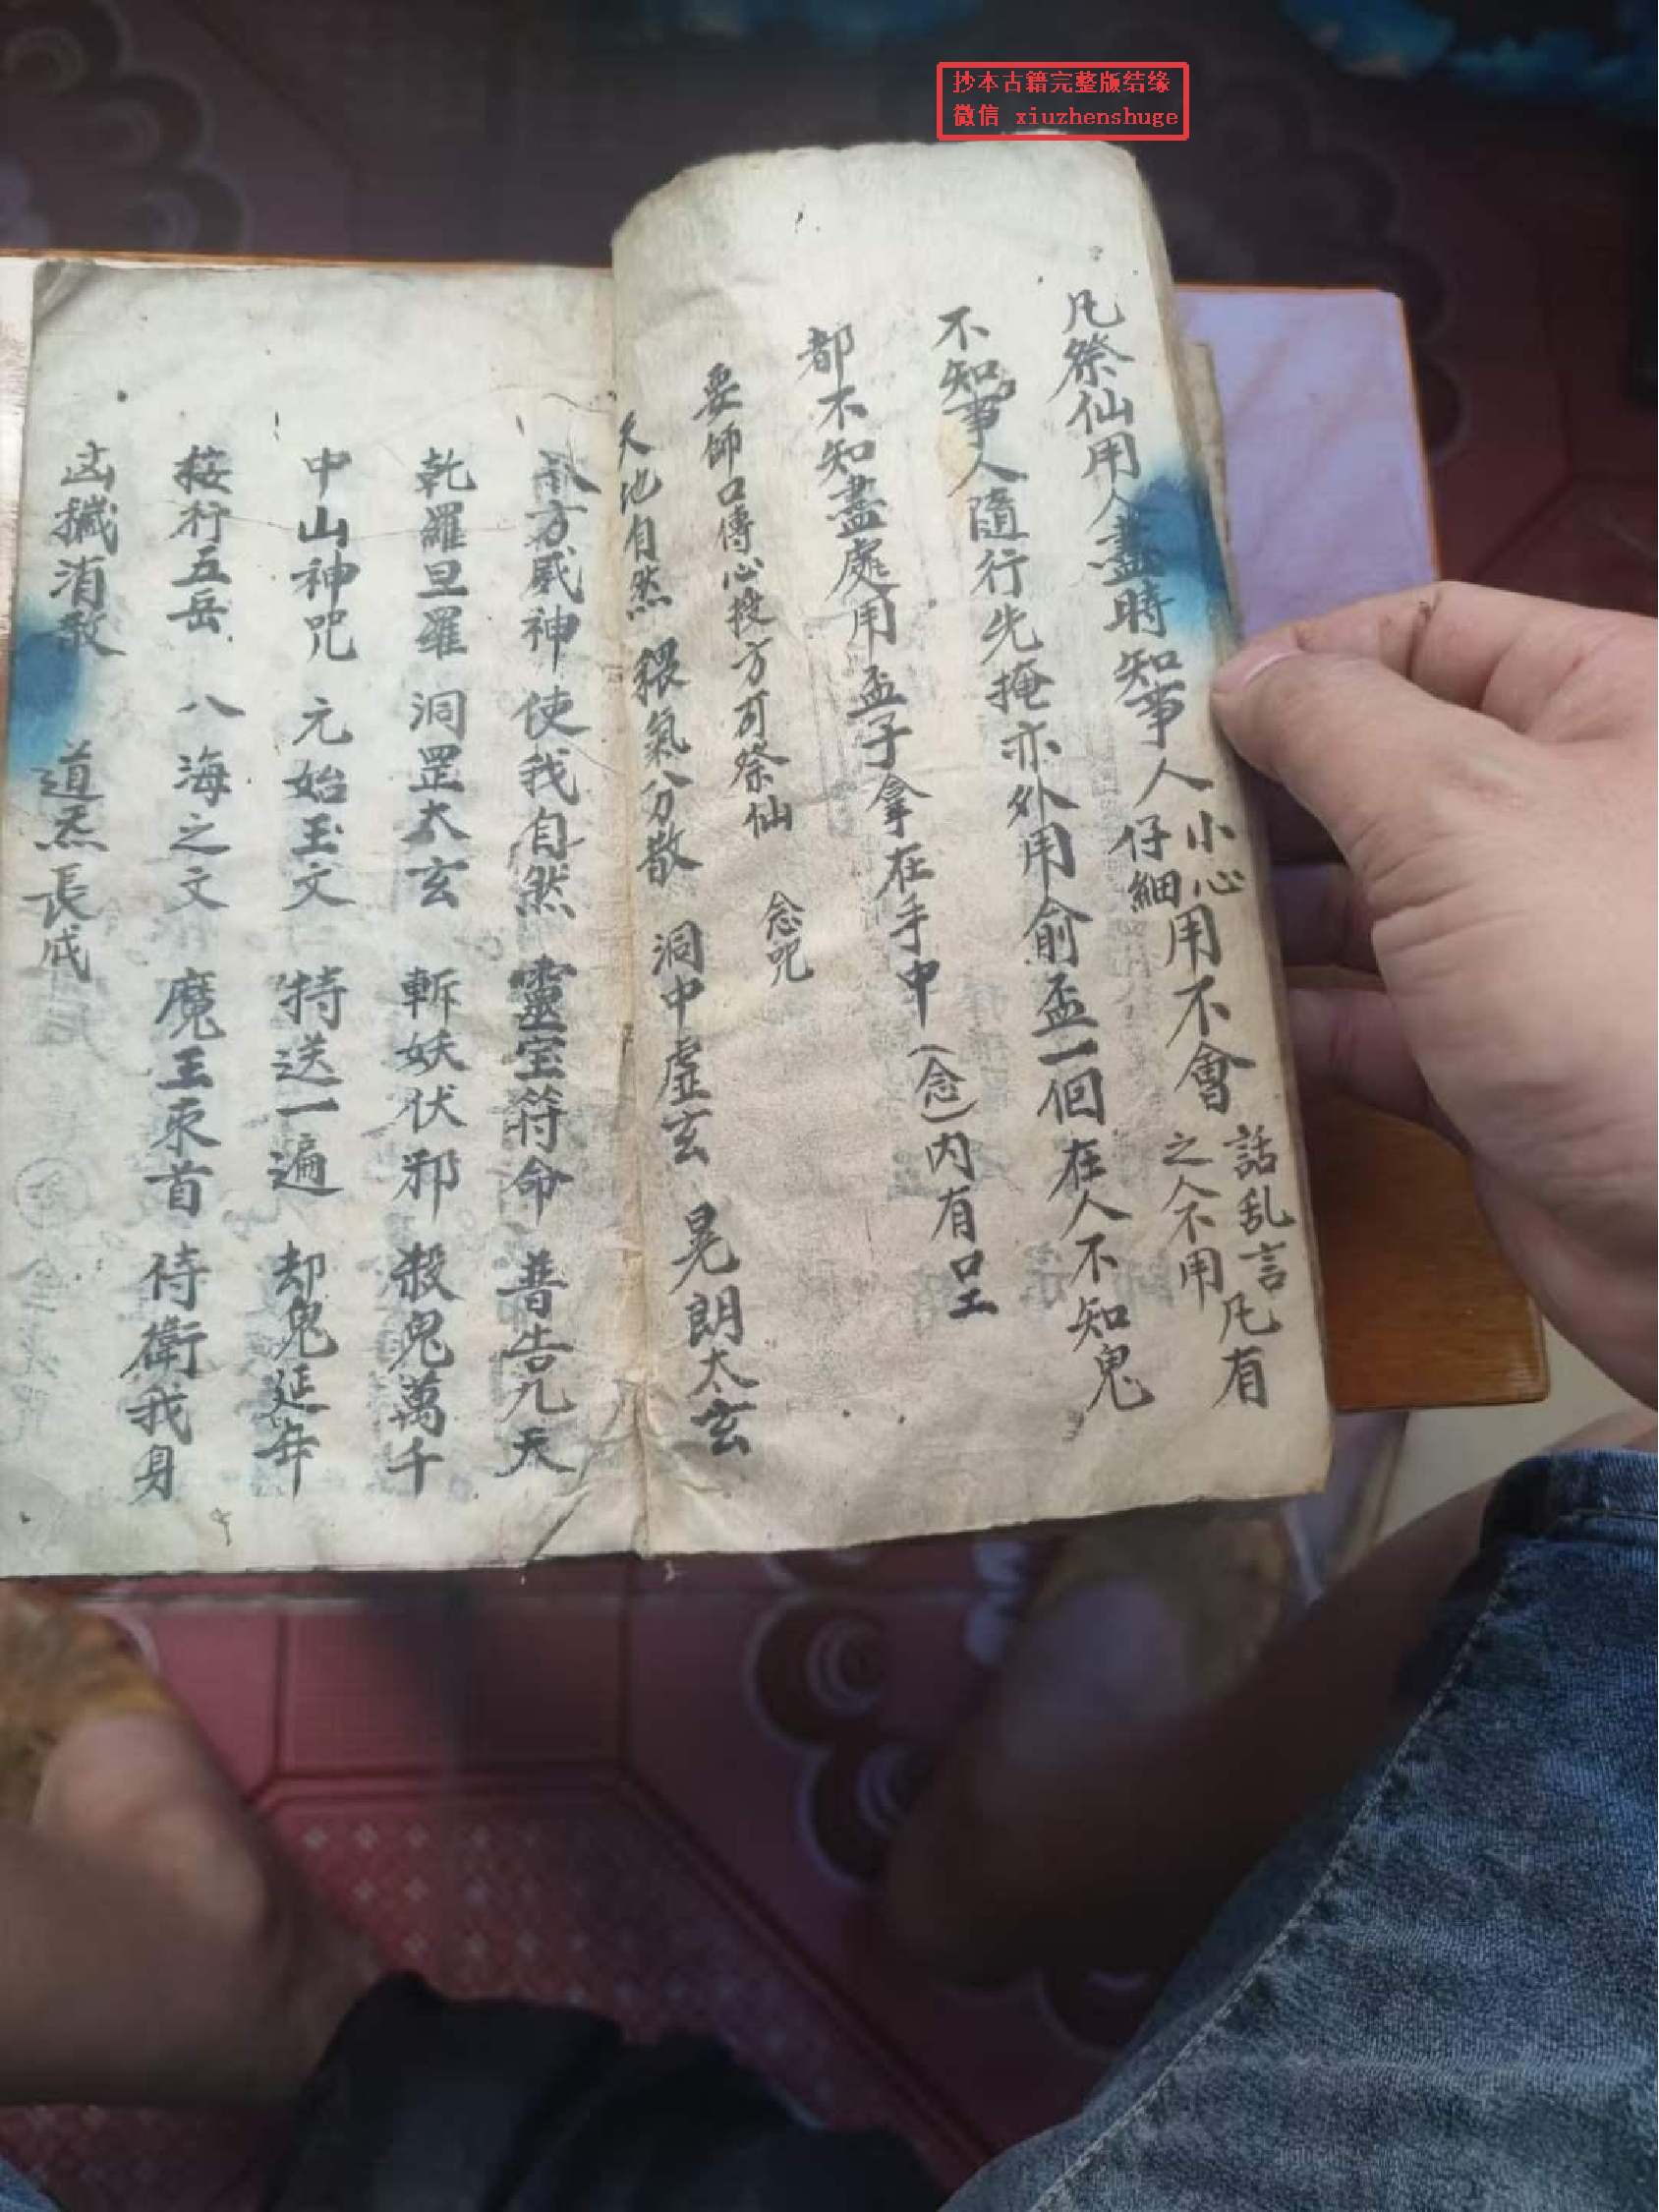 抄本古籍完整版结缘
微信 xiuzhenshuge
凡祭仙用人盡時知事人小心仔細用不會話乱言之人不用凡有
不知事人隨行先掩亦外用俞盃一個在人不知鬼
都不知盡處用盃子拿在手中（念）内有口工
要師口傳心授方可祭仙 念咒
天地自然 猥氣分散 洞中虚玄 晃朗太玄
八方威神 使我自然 靈宝符命 普告九天
乾羅旦羅 洞罡太玄 斬妖伏邪 殺鬼萬千
中山神咒 元始玉文 持送一遍 却鬼延年
按行五岳 八海之文 魔王束首 待衛我身
凶穢消散 道炁長成